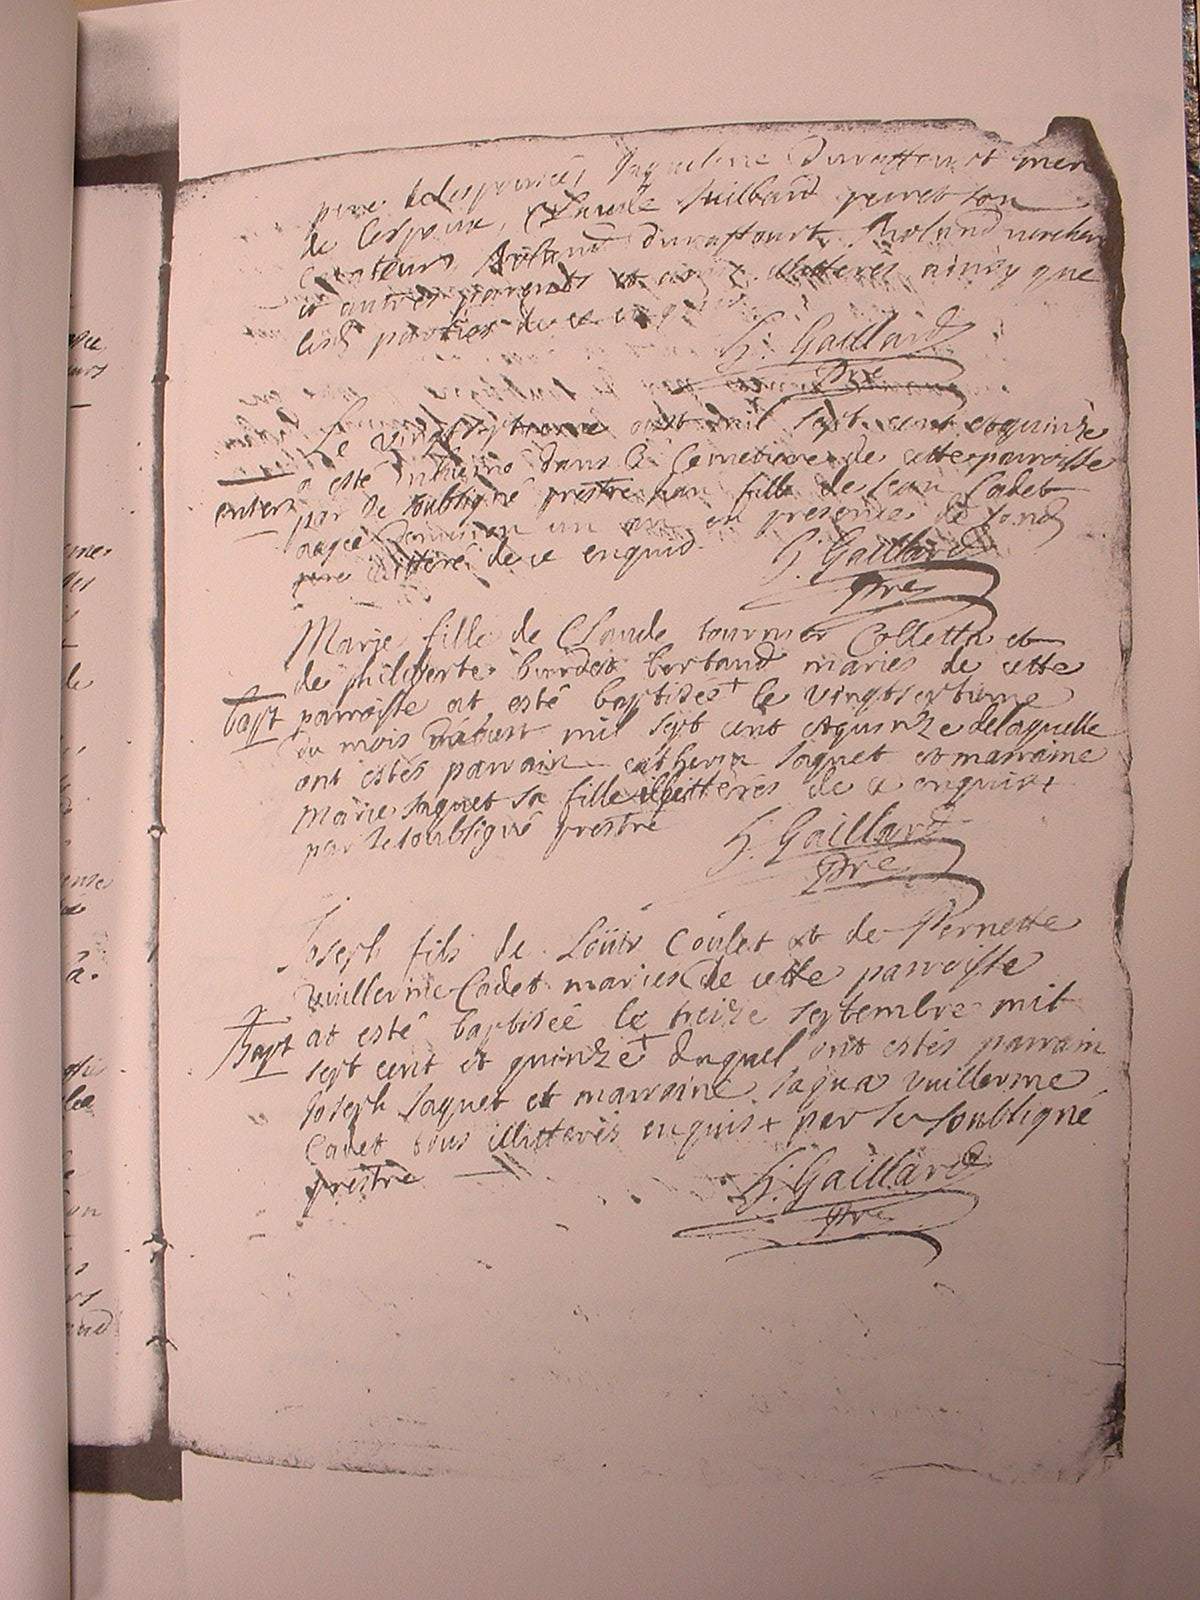 pere de l'espousée, Jaqueline Duraffourt mere
de l'espoux, Claude Vuilbard peiret son
Durafourt, Roland
et autres parents et amis illitteres ainsy que
les parties de ce enquis
G. Gaillard
pre
Le vingt septieme aoust mil sept cent et quinze
a esté inhumé dans le Cemetiere de cette parroisse
enterr
par le soubsigné prestre une fille de Jean Cadet
aagée d'environ un an en presence de sond
pere illitteré de ce enquid
G. Gaillard
pre
Marie fille de Claude tournier Colletta et
de philiberte bourdet bertaud mariés de cette
bapt
parroisse at esté baptisée + le vingt septieme
du mois d'aoust mil sept cent et quinze de laquelle
ont estés parrain catherin Jaquet et marraine
marie Jaquet sa fille illitterés de ce enquis +
par le soubsigné prestre
G. Gaillard
pre
Joseph fils de Loüis Coulet et de Pernette
Vuillerme Cadet mariés de cette parroisse
Bapt
at esté baptisée le treize septembre mil
sept cent et quinze + duquel ont estés parrain
Joseph Jaquet et marraine Jaqua Vuillerme
Cadet tous illitterés enquis + par le soubsigné
prestre
G. Gaillard
pre